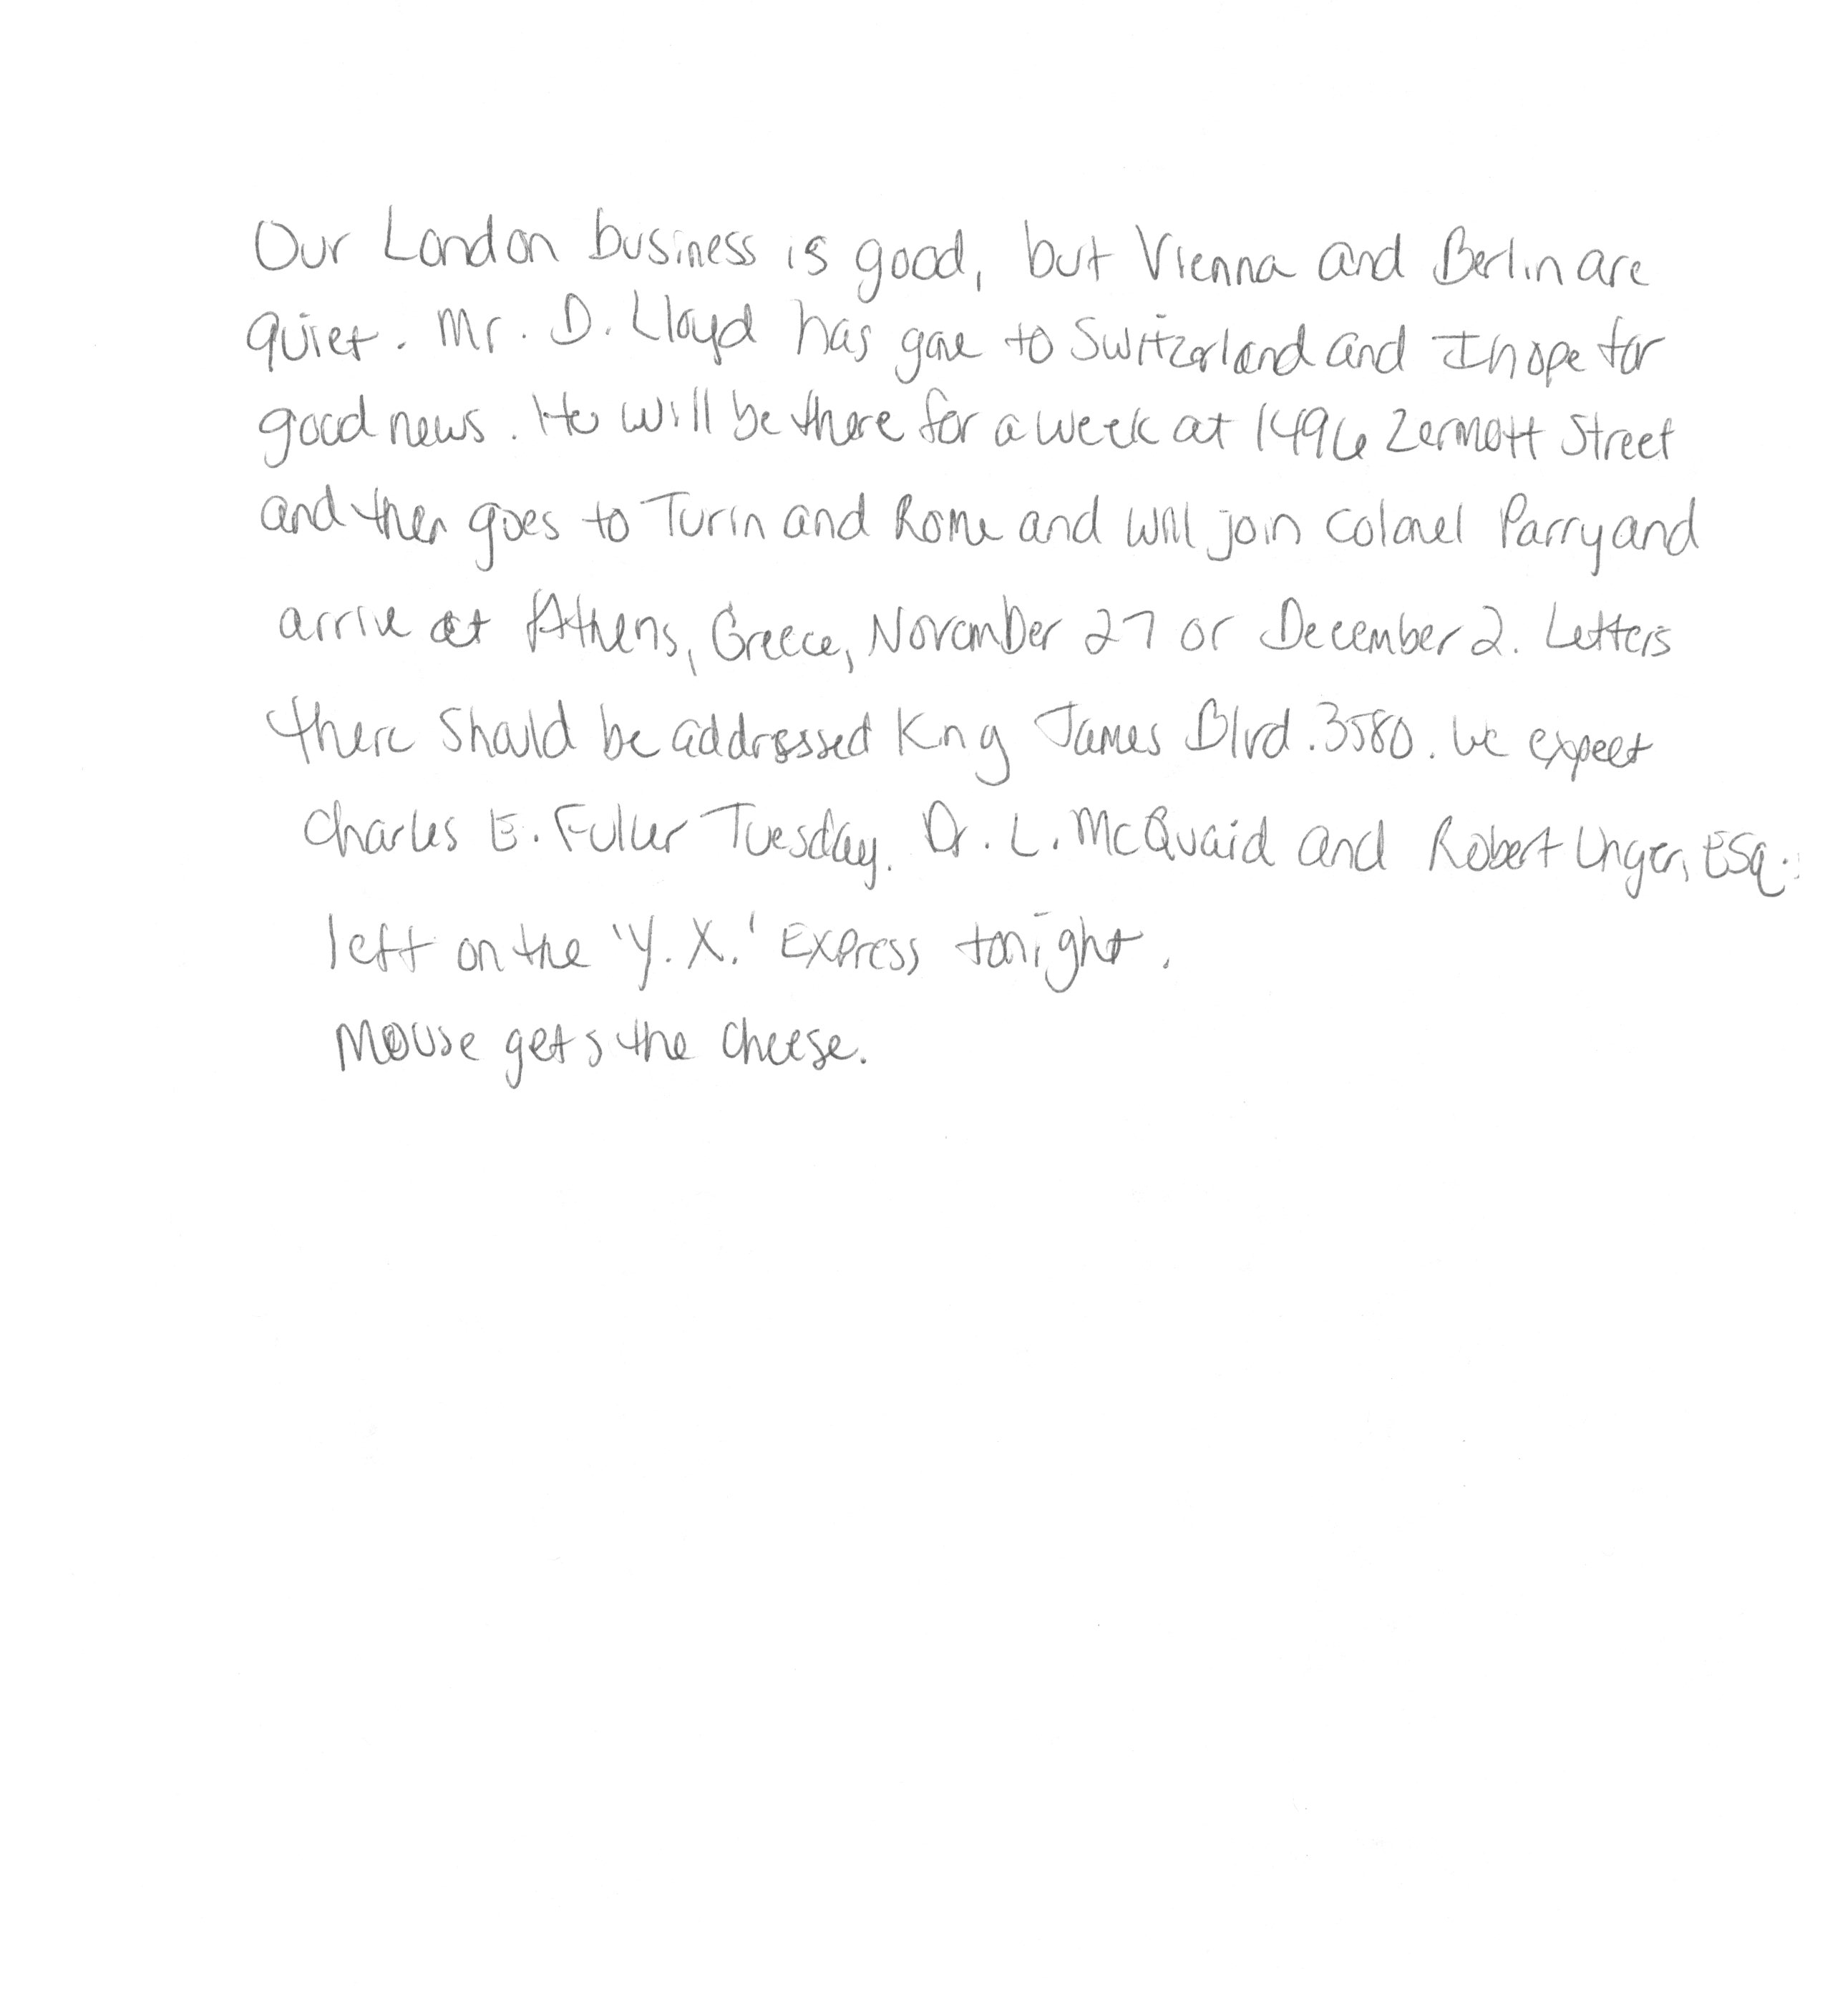 Our London business is good, but Vienna and Berlin are
quiet. Mr. D. Lloyd has gone to Switzerland and I hope for
good news. He will be there for a week at 1496 Zermott Street
and then goes to Turin and Rome and will join Colonel Parry and
arrive at Athens, Greece, November 27 or December 2. Letters
there should be addressed King James Blvd. 3580. We expect
Charles E. Fuller Tuesday. Dr. L. McQuaid and Robert Unger, Esq.
left on the 'Y. X.' Express tonight.
Mouse gets the cheese.